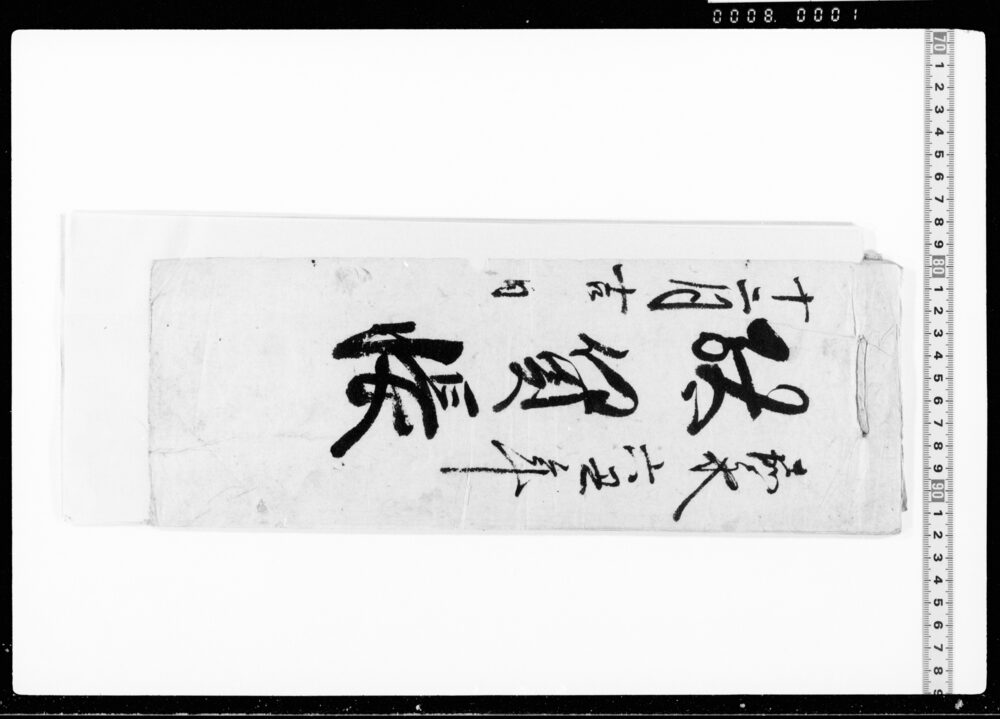 0008. 0001
嘉永六丑年
帳
十二月吉日
70 1 2 3 4 5 6 7 8 9 80 1 2 3 4 5 6 7 8 9 90 1 2 3 4 5 6 7 8 9